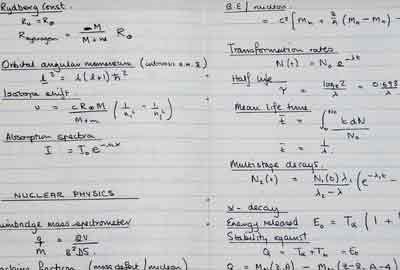 Rydberg Const.
R∞ = R∞
R hydrogen = ∞M / M + m R∞
Orbital angular momentum
l² = l(l+1) ħ²
Isotope shift.
υ = cR∞M / M+m (1/n₁² - 1/n₂²)
Absorption spectra
I = I₀ e^-nαx
NUCLEAR PHYSICS
mass spectrometer
q/m = 2V / B²DS
fraction (mass defect / nucleon)
B.E / nucleon
= c² [Mn + Z/A (MH - Mn) -
Transformation rates
N(t) = N₀ e^-λt
Half life
τ = loge2 / λ = 0.693 / λ
Mean life time
t̄ = ∫₀^N₀ t dN / N₀
t̄ = 1/λ
Multistage decays.
N₂(t) = N₁(0) λ₁ / λ₂ - λ₁ (e^-λ₁t -
α - decay
Energy released E₀ = Tα (1 +
Stability against
Q = Tα + Tb = E₀
Q = M (Z,A) - M (Z-2, A-4)